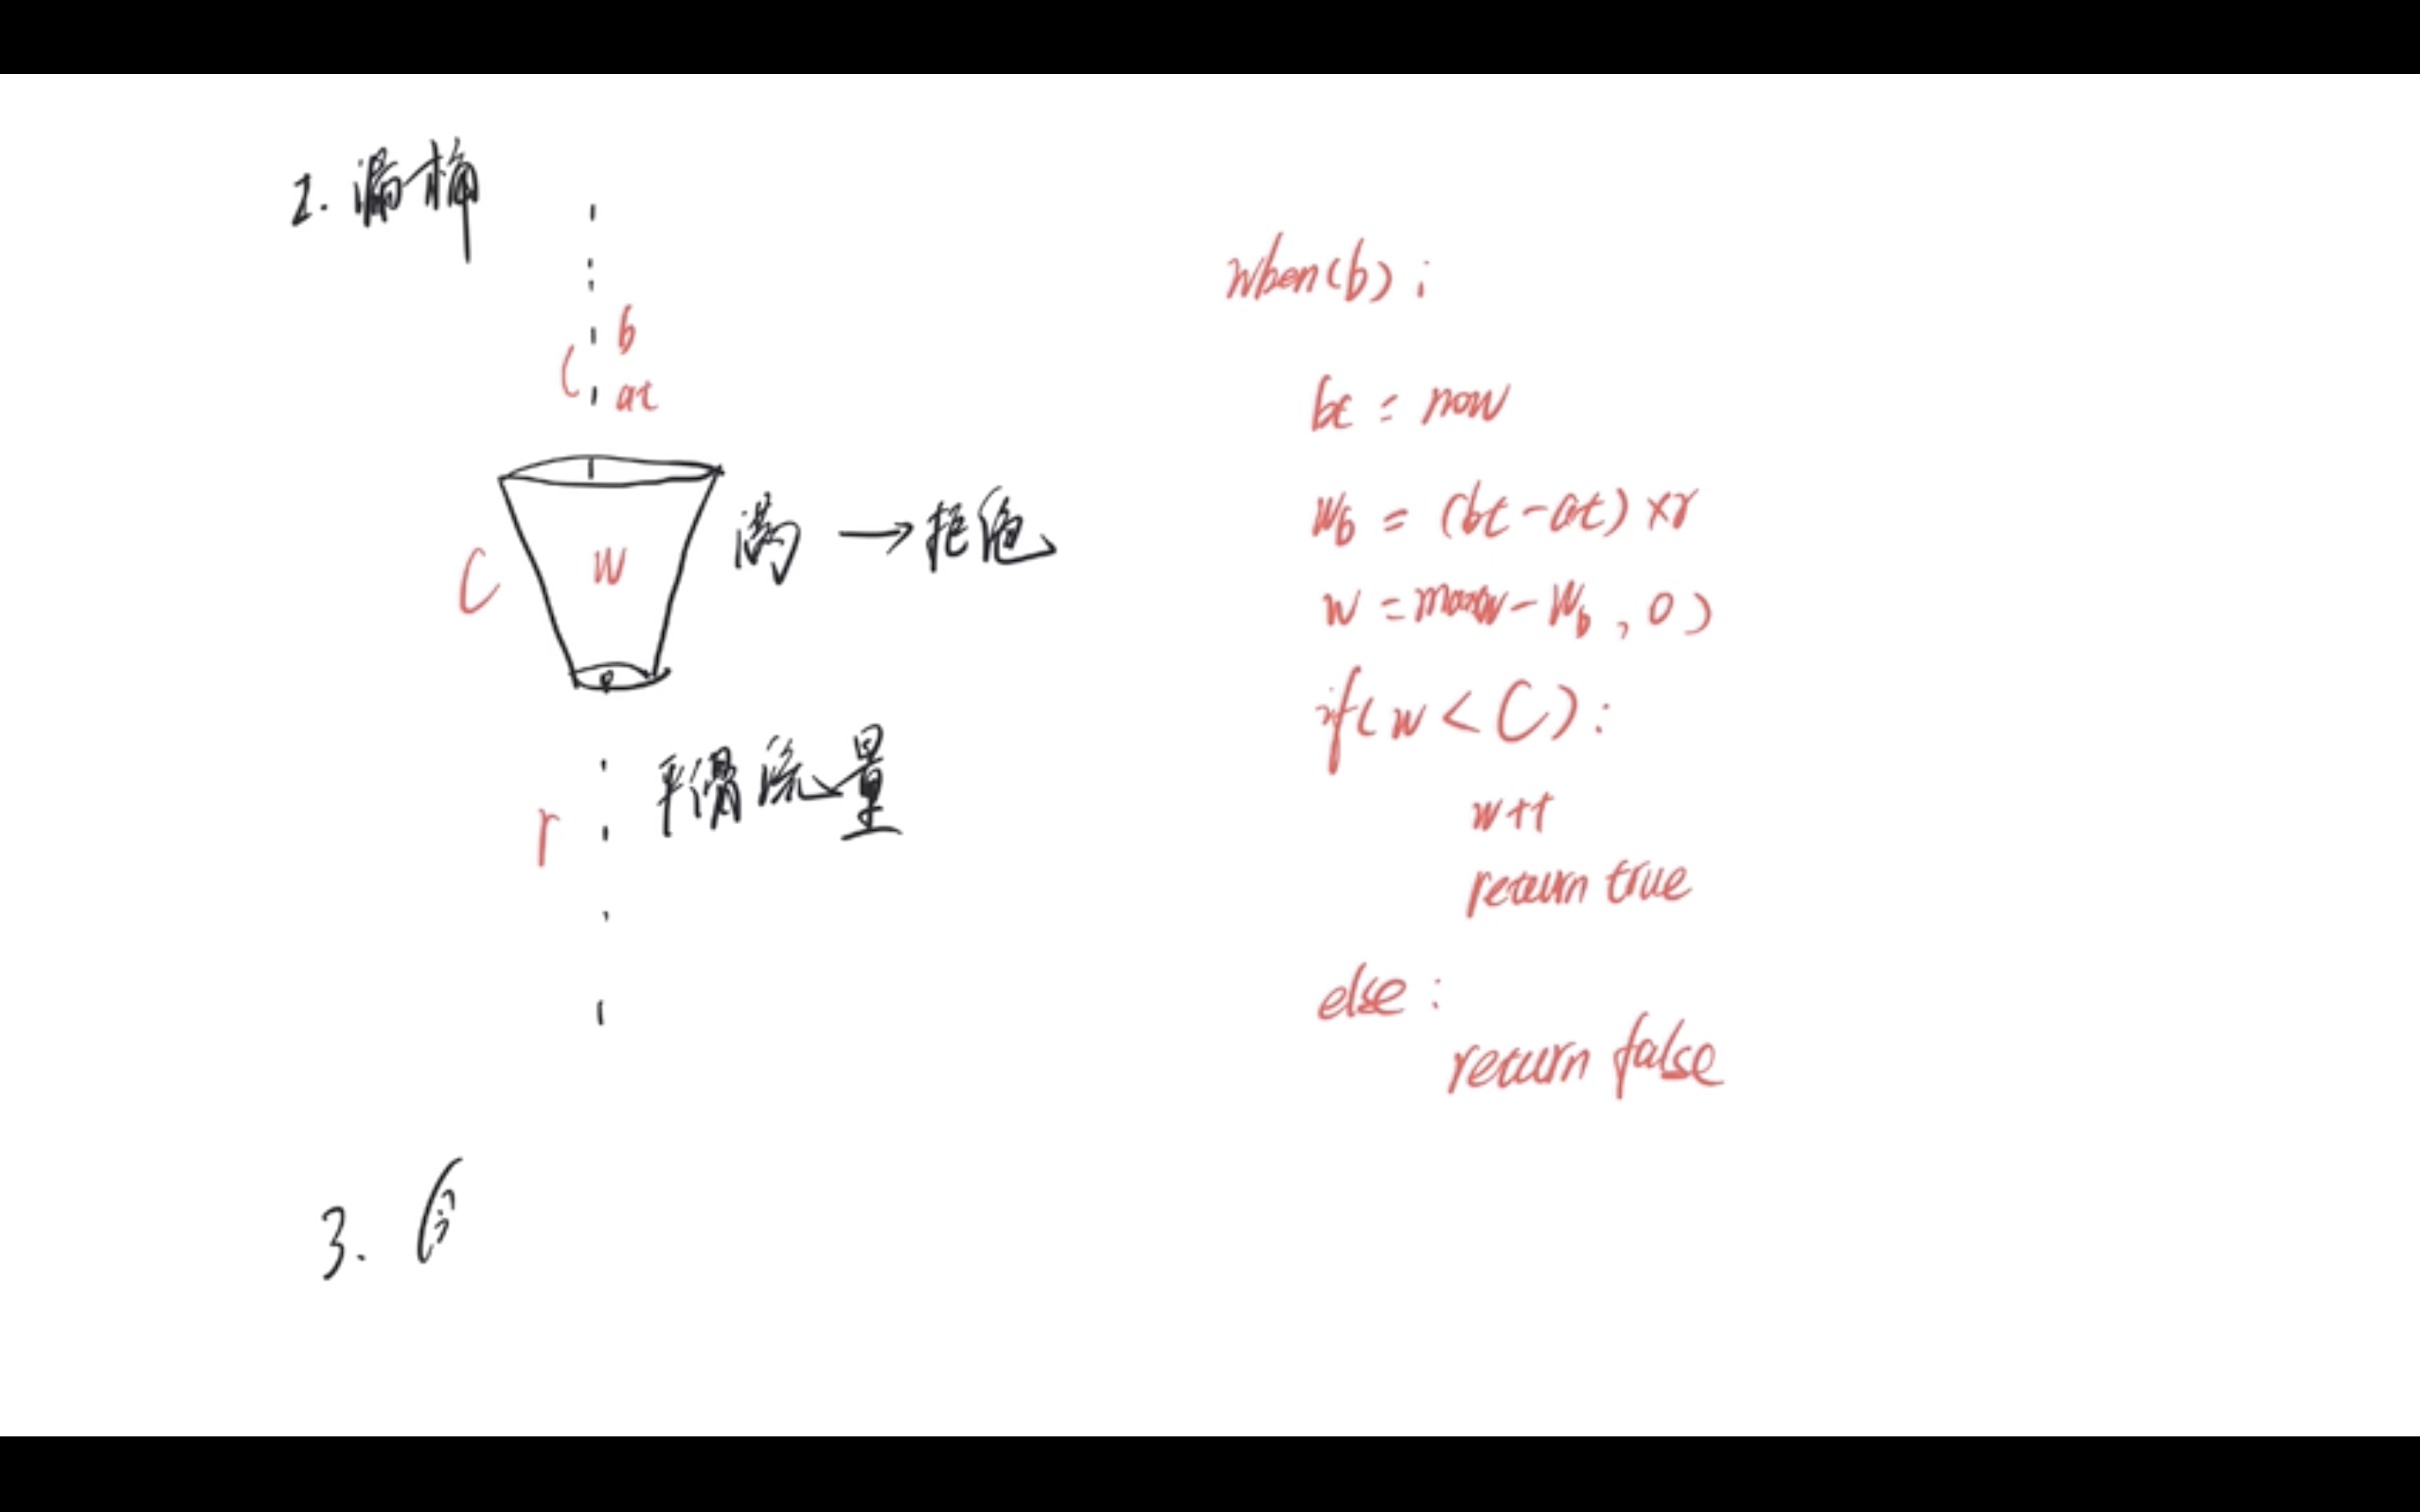 2. 漏桶
b
at
C
w
满 → 拒绝
r
平滑流量
3.
when(b):
bt = now
wb = (bt-at)×r
w = max(w-wb, 0)
if(w < C):
w++
return true
else:
return false